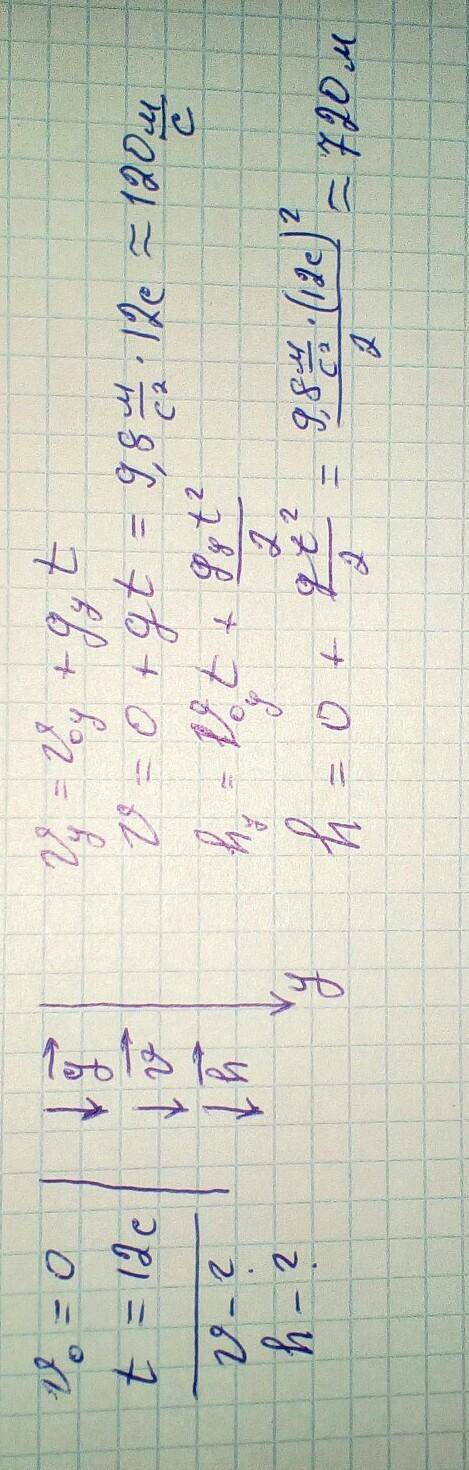 v₀ = 0
t = 12с
v – ?
h – ?
g⃗
v⃗
h⃗
y
v_y = v₀_y + g_y t
v = 0 + gt = 9,8 м/с² · 12с ≈ 120 м/с
h_y = v₀_y t + g_y t²/2
h = 0 + gt²/2 = 9,8 м/с² · (12с)²/2 ≈ 720 м